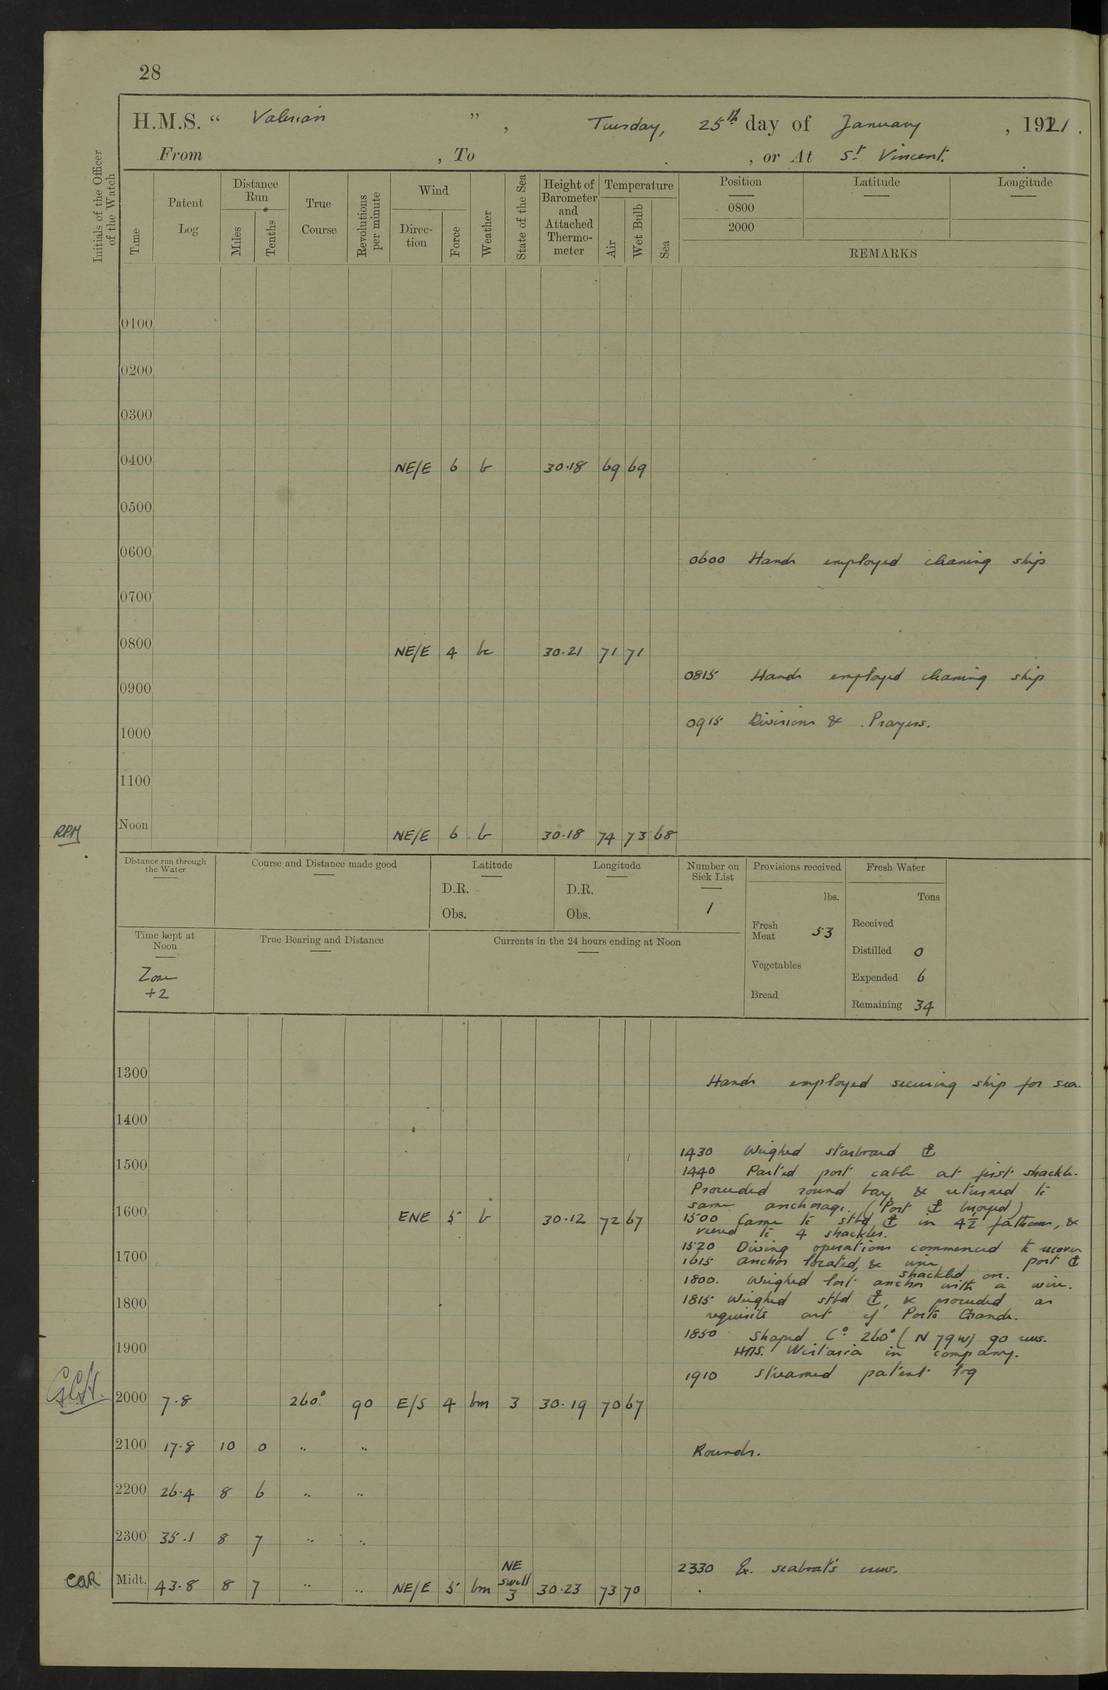 28
H.M.S. “ Valerian ” , Tuesday, 25th day of January , 1921.
From , To , or At St Vincent.
Initials of the Officer of the Watch
Time
Patent Log
Distance Run
Miles
Tenths
True Course
Revolutions per minute
Wind
Direction
Force
Weather
State of the Sea
Height of Barometer and Attached Thermometer
Temperature
Air
Wet Bulb
Sea
Position Latitude Longitude
0800
2000
REMARKS
0100
0200
0300
0400 NE/E 6 b 30.18 69 69
0500
0600 0600 Hands employed cleaning ship
0700
0800 NE/E 4 bc 30.21 71 71
0815 Hands employed cleaning ship
0900
0915 Divisions & Prayers.
1000
1100
RPM Noon NE/E 6 b 30.18 74 73 68
Distance run through the Water
Course and Distance made good
Latitude
D.R.
Obs.
Longitude
D.R.
Obs.
Number on Sick List
1
Provisions received
lbs.
Fresh Meat 53
Vegetables
Bread
Fresh Water
Tons
Received
Distilled 0
Expended 6
Remaining 34
Time kept at Noon
Zone +2
True Bearing and Distance
Currents in the 24 hours ending at Noon
1300 Hands employed securing ship for sea.
1400
1430 Weighed starboard ⚓
1500 1440 Parted port cable at first shackle.
Proceeded round bay & returned to
same anchorage. (Port ⚓ buoyed)
1600 ENE 5 b 30.12 72 67 1500 Came to stbd ⚓ in 4½ fathoms, &
veered to 4 shackles.
1520 Diving operations commenced to recover port ⚓
1700 1615 anchor located, & wire shackled on.
1800. Weighed Port anchor with a wire.
1800 1815 Weighed stbd ⚓, & proceeded as
requisite out of Porto Grande.
1850 Shaped Co 260° (N 79 W) 90 revs.
1900 HMS. Wistaria in company.
1910 Streamed patent log
GCH. 2000 7.8 260° 90 E/S 4 bm 3 30.19 70 67
2100 17.8 10 0 " " Rounds.
2200 26.4 8 6 " "
2300 35.1 8 7 " "
2330 Ex. seaboat's crews.
COR Midt. 43.8 8 7 " " NE/E 5 bm NE swell 3 30.23 73 70